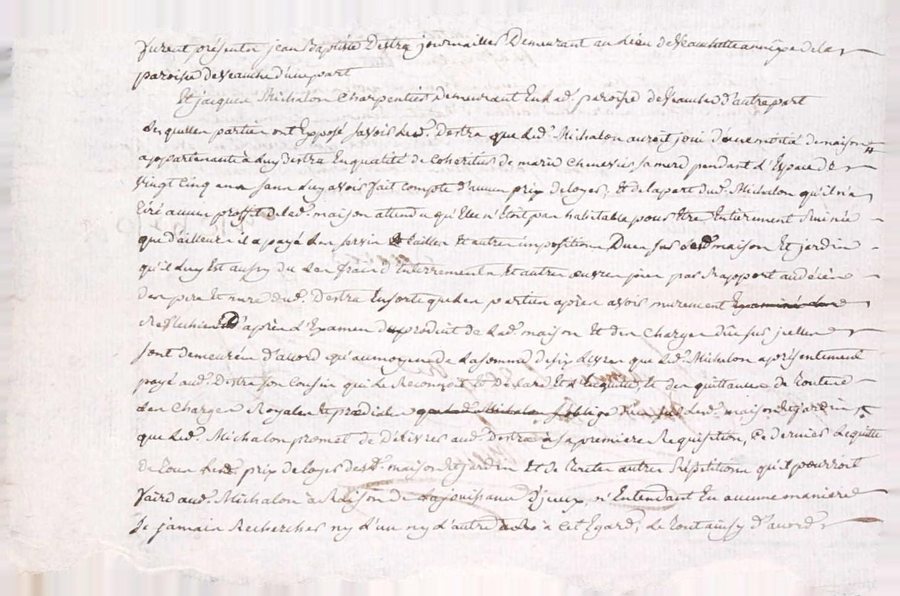 furent présents jean Baptiste Destra journallier Demeurant au lieu de Veauchette annexe de la
paroisse de Veauche d'une part
Et jacques Michalon Charpentier Demeurant En lad. paroisse de Veauche d'autre part
Lesquelles parties ont Exposé savoir led. Destra que led. Michalon auroit joui d'une moitié de maison
appartenante à luy destra En qualité de Coheritier de marie Chenevier sa mere pendant l'Espace de
vingt cinq ans sans luy avoir fait compte d'aucun prix de loyer, Et de la part dud. Michalon qu'il n'a
tiré aucun proffit de lad. maison attendu qu'Elle n'Etoit pas habitable pour Etre Entierement Ruinée
que d'ailleurs il a payé les servis tailles Et autres impositions Dues sur lesd. maison Et jardin
qu'il luy Est aussy du des fraix d'Enterrements Et autres œuvres pies par Rapport au décès
des pere Et mere dud. Destra Ensorte que les parties après avoir murement Examiné
Reflechies d'après l'Examen du produit de lad. maison Et des Charges d'icelles
sont demeurées d'accord qu'au moyen de la somme de six Livres que led. Michalon a présentement
payé aud. Destra son Cousin qui le Reconnoit Et Declare Et l'acquitte Et des quittances de toutes
les Charges Royales Et prediales que led. Michalon s'oblige sur lesd. maison Et jardin
que led. Michalon promet de Délivrer aud. destra à sa premiere Requisition, Ce dernier le quitte
de tous led. prix de loyer desd. maison Et jardin Et de toutes autres Répétitions qu'il pourroit
faire aud. Michalon à Raison de sa jouissance d'jceux, n'Entendant En aucune maniere
se jamais Rechercher ny d'un ny d'autre à cet Egard, le tout aussy d'accord